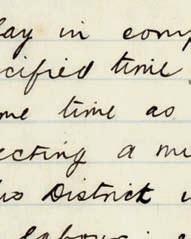 lay in comp
cified time
me time as
ecting a m
his District
labour